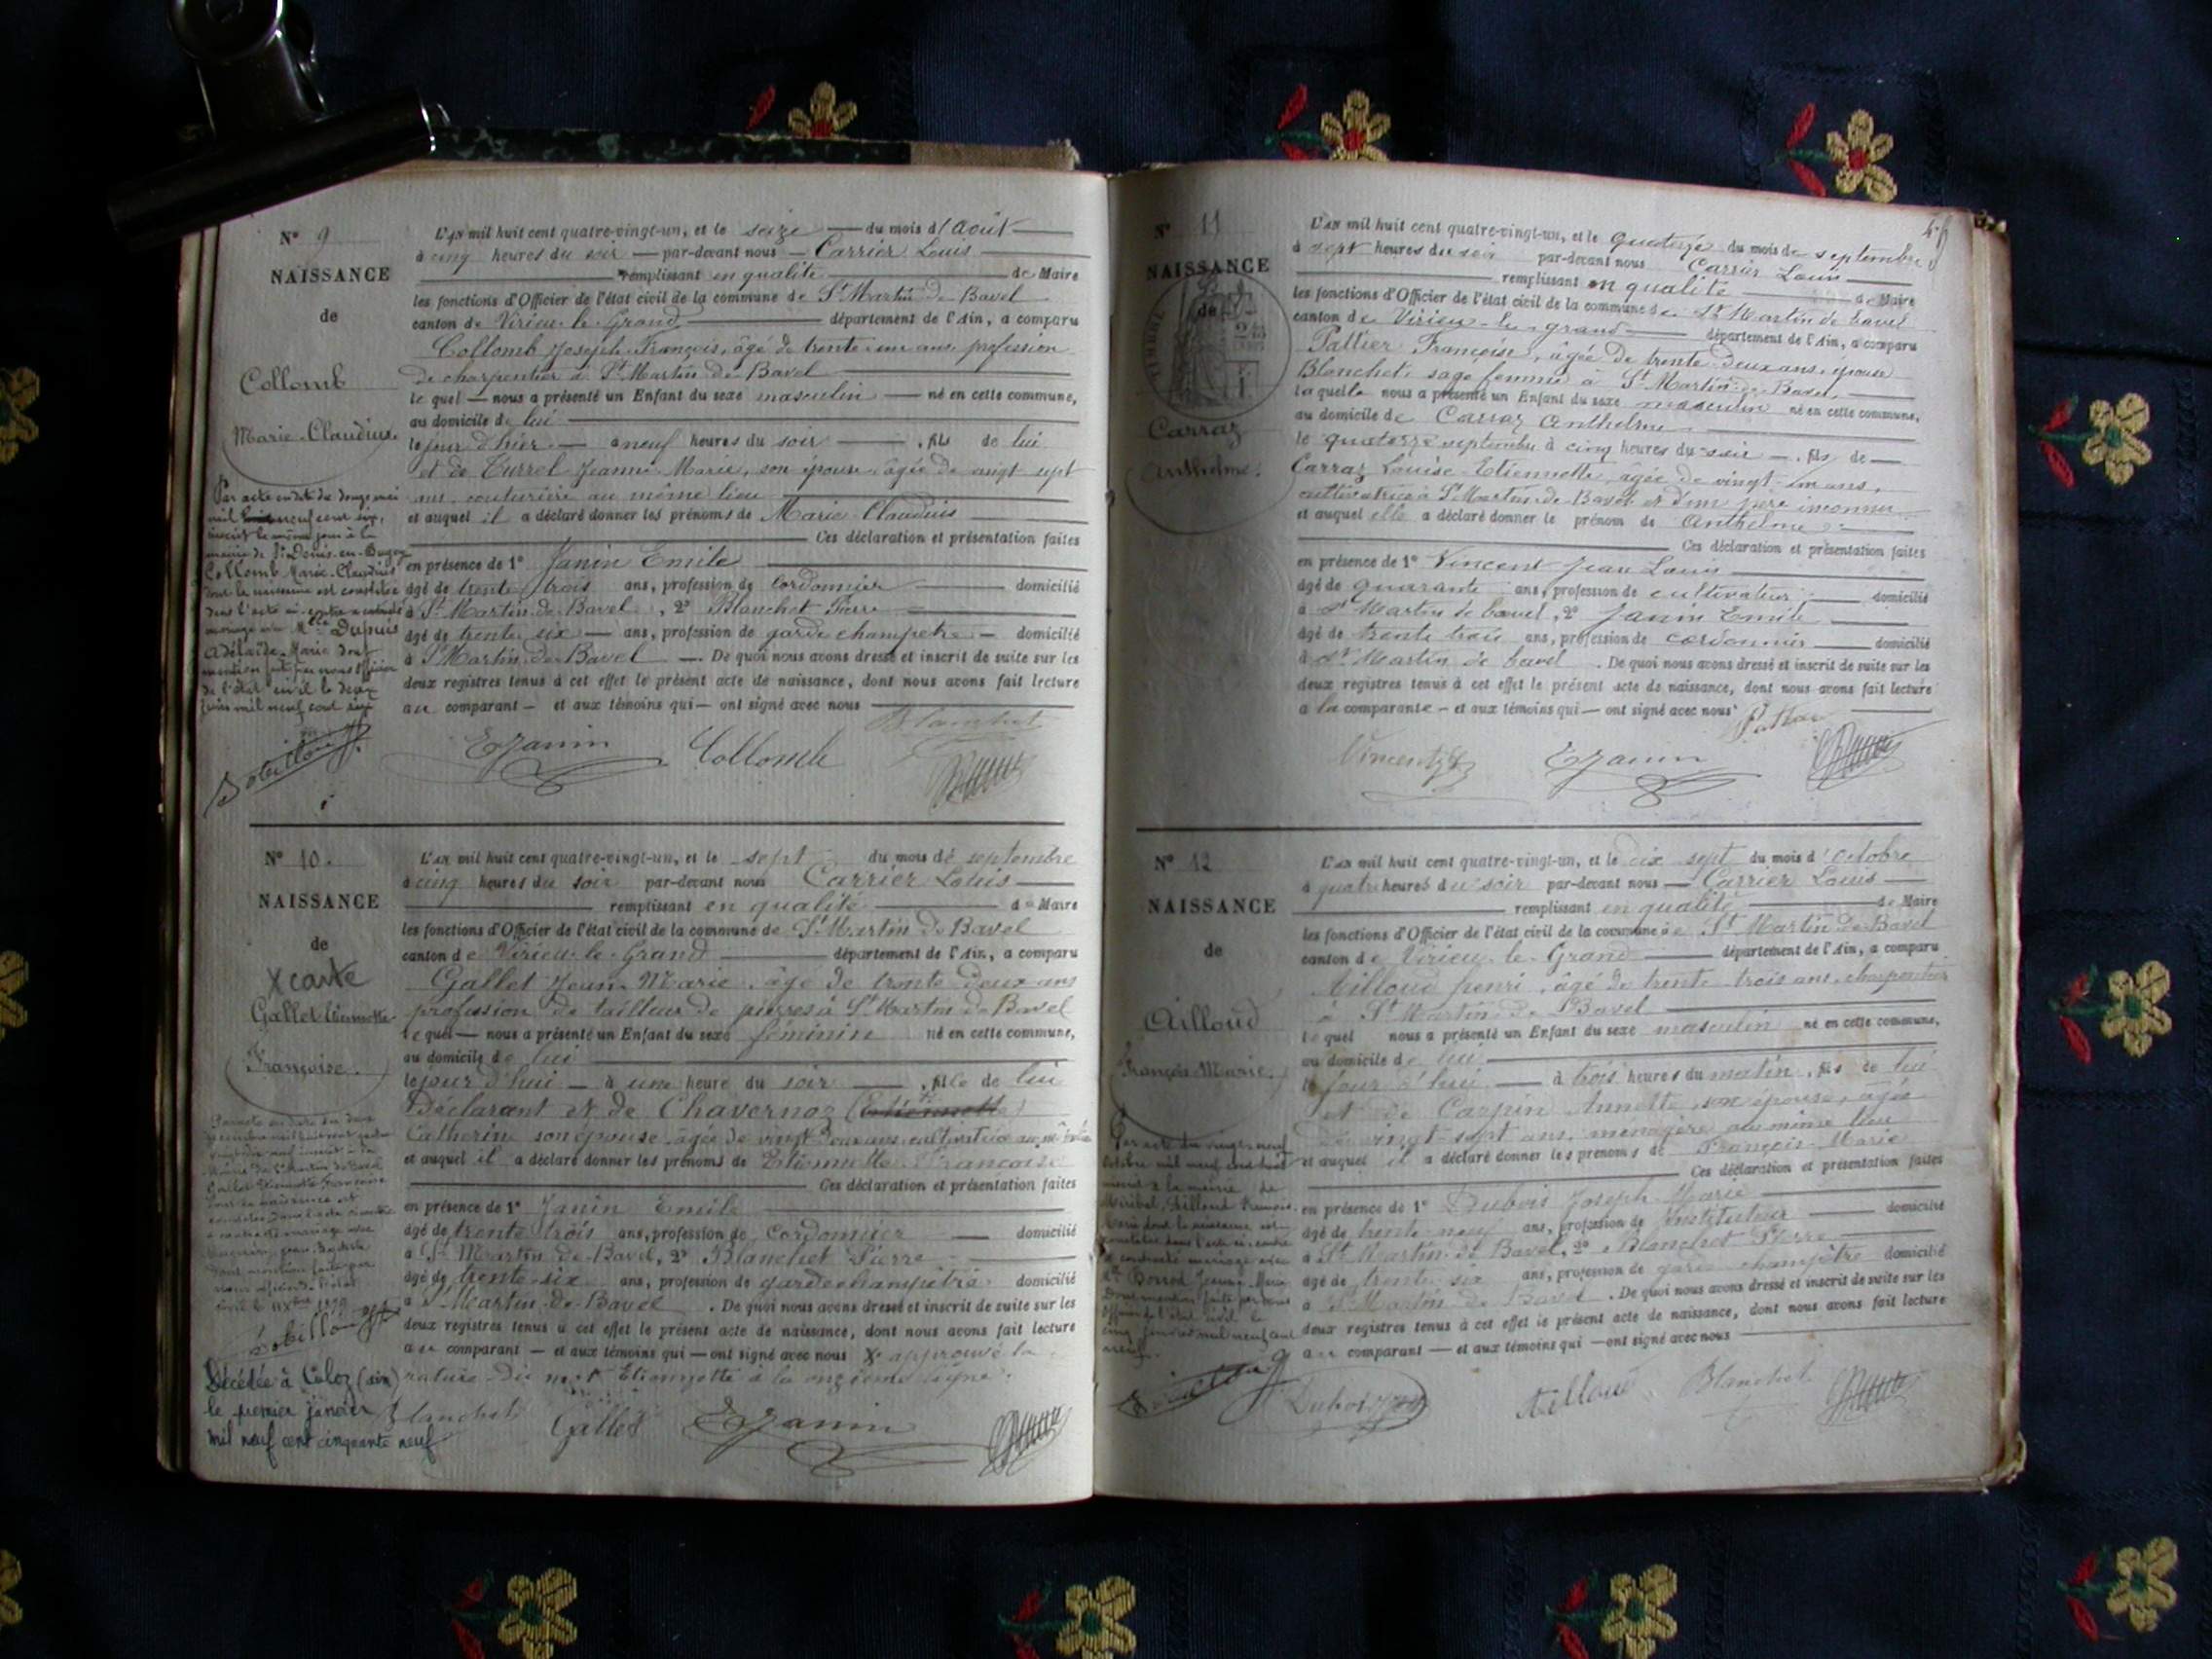 N° 9
NAISSANCE
de
Collomb
Marie-Claudius
L'AN mil huit cent quatre-vingt-un, et le seize du mois d'Août
à cinq heures du soir par-devant nous Carrier Louis
remplissant en qualité de Maire
les fonctions d'Officier de l'état civil de la commune de St Martin de Bavel
canton de Virieu-le-Grand département de l'Ain, a comparu
Collomb Joseph François, âgé de trente-un ans profession
de charpentier à St Martin de Bavel
lequel nous a présenté un Enfant du sexe masculin né en cette commune,
au domicile de lui
le jour d'hier à neuf heures du soir, fils de lui
et de Turrel Jeanne-Marie, son épouse âgée de vingt sept
ans, couturière au même lieu
et auquel il a déclaré donner les prénoms de Marie-Claudius
Ces déclaration et présentation faites
en présence de 1° Janin Emile
âgé de trente trois ans, profession de Cordonnier domicilié
à St Martin de Bavel, 2° Blanchet Pierre
âgé de trente six ans, profession de garde champetre domicilié
à St Martin de Bavel. De quoi nous avons dressé et inscrit de suite sur les
deux registres tenus à cet effet le présent acte de naissance, dont nous avons fait lecture
au comparant et aux témoins qui ont signé avec nous
Par acte en date du douze mai
mil neuf cent six,
inscrit le même jour à la
mairie de St Denis-en-Bugey
Collomb Marie-Claudius
dont la naissance est constatée
dans l'acte ci-contre a contracté
mariage avec Mlle Dupuis
Adélaïde-Marie dont
mention faite par nous Officier
de l'état civil le deux
juin mil neuf cent six
Blanchet
E Janin Collomb
N° 10.
NAISSANCE
de
X carte
Gallet Etiennette
Françoise.
L'AN mil huit cent quatre-vingt-un, et le sept du mois de septembre
à cinq heures du soir par-devant nous Carrier Louis
remplissant en qualité de Maire
les fonctions d'Officier de l'état civil de la commune de St Martin de Bavel
canton de Virieu-le-Grand département de l'Ain, a comparu
Gallet Jean-Marie, âgé de trente deux ans
profession de tailleur de pierres à St Martin de Bavel
lequel nous a présenté un Enfant du sexe féminin né en cette commune,
au domicile de lui
le jour d'hui à une heure du soir, fille de lui
Déclarant et de Chavernoz (Etiennette)
Catherine son épouse âgée de vingt deux ans cultivatrice au même lieu
et auquel il a déclaré donner les prénoms de Etiennette Françoise
Ces déclaration et présentation faites
en présence de 1° Janin Emile
âgé de trente trois ans, profession de Cordonnier domicilié
à St Martin de Bavel, 2° Blanchet Pierre
âgé de trente-six ans, profession de garde champêtre domicilié
à St Martin de Bavel. De quoi nous avons dressé et inscrit de suite sur les
deux registres tenus à cet effet le présent acte de naissance, dont nous avons fait lecture
au comparant et aux témoins qui ont signé avec nous X approuvé la
rature du mot Etiennette à la onzième ligne.
Décédée à Culoz (Ain)
le premier janvier
mil neuf cent cinquante neuf
Blanchet Gallet E Janin
N° 11
NAISSANCE
de
TIMBRE
Carraz
Anthelme.
L'AN mil huit cent quatre-vingt-un, et le quatorze du mois de septembre
à sept heures du soir par-devant nous Carrier Louis
remplissant en qualité de Maire
les fonctions d'Officier de l'état civil de la commune de St Martin de bavel
canton de Virieu-le-grand département de l'Ain, a comparu
Pallier Françoise, âgée de trente-deux ans, épouse
Blanchet sage femme à St Martin de Bavel,
laquelle nous a présenté un Enfant du sexe masculin né en cette commune,
au domicile de Carraz Anthelme
le quatorze septembre à cinq heures du soir, fils de
Carraz Louise-Etiennette, âgée de vingt-un ans,
cultivatrice à St Martin de Bavel et d'un père inconnu
et auquel elle a déclaré donner le prénom de Anthelme
Ces déclaration et présentation faites
en présence de 1° Vincent Jean Louis
âgé de quarante ans, profession de cultivateur domicilié
à St Martin de bavel, 2° Janin Emile
âgé de trente trois ans, profession de cordonnier domicilié
à St Martin de bavel. De quoi nous avons dressé et inscrit de suite sur les
deux registres tenus à cet effet le présent acte de naissance, dont nous avons fait lecture
à la comparante et aux témoins qui ont signé avec nous
Vincent E Janin
N° 12
NAISSANCE
de
Ailloud
François-Marie.
L'AN mil huit cent quatre-vingt-un, et le dix sept du mois d'Octobre
à quatre heures du soir par-devant nous Carrier Louis
remplissant en qualité de Maire
les fonctions d'Officier de l'état civil de la commune de St Martin de Bavel
canton de Virieu-le-Grand département de l'Ain, a comparu
Ailloud henri, âgé de trente trois ans, charpentier
à St Martin de Bavel
lequel nous a présenté un Enfant du sexe masculin né en cette commune,
au domicile de lui
le jour d'hui à trois heures du matin, fils de lui
et de Carpin Annette son épouse, âgée
de vingt-sept ans, menagère au même lieu
et auquel il a déclaré donner les prénoms de François-Marie
Ces déclaration et présentation faites
en présence de 1° Dubois Joseph Marie
âgé de trente neuf ans, profession de Instituteur domicilié
à St Martin de Bavel, 2° Blanchet Pierre
âgé de trente six ans, profession de garde champêtre domicilié
à St Martin de Bavel. De quoi nous avons dressé et inscrit de suite sur les
deux registres tenus à cet effet le présent acte de naissance, dont nous avons fait lecture
au comparant et aux témoins qui ont signé avec nous
Dubois Ailloud Blanchet